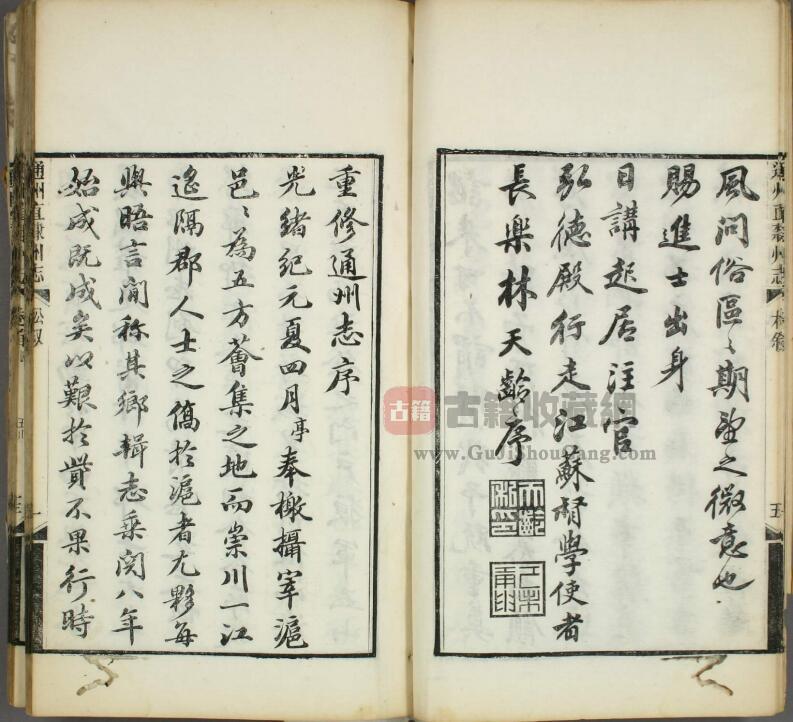 風問俗區〻期望之微意也
賜進士出身
日講起居注官
弘德殿行走江蘇督學使者
長樂林天齡序
重修通州志序
光緒紀元夏四月亭奉檄攝宰滬
邑〻為五方薈集之地而崇川一江
遙隔郡人士之僑於滬者尤夥每
與晤言間稱其鄉輯志乘閱八年
始成既成矣以艱於貲不果行時
通州直隸州志
通州直隸州志
古籍
古籍收藏網
www.GuJiShouCang.com